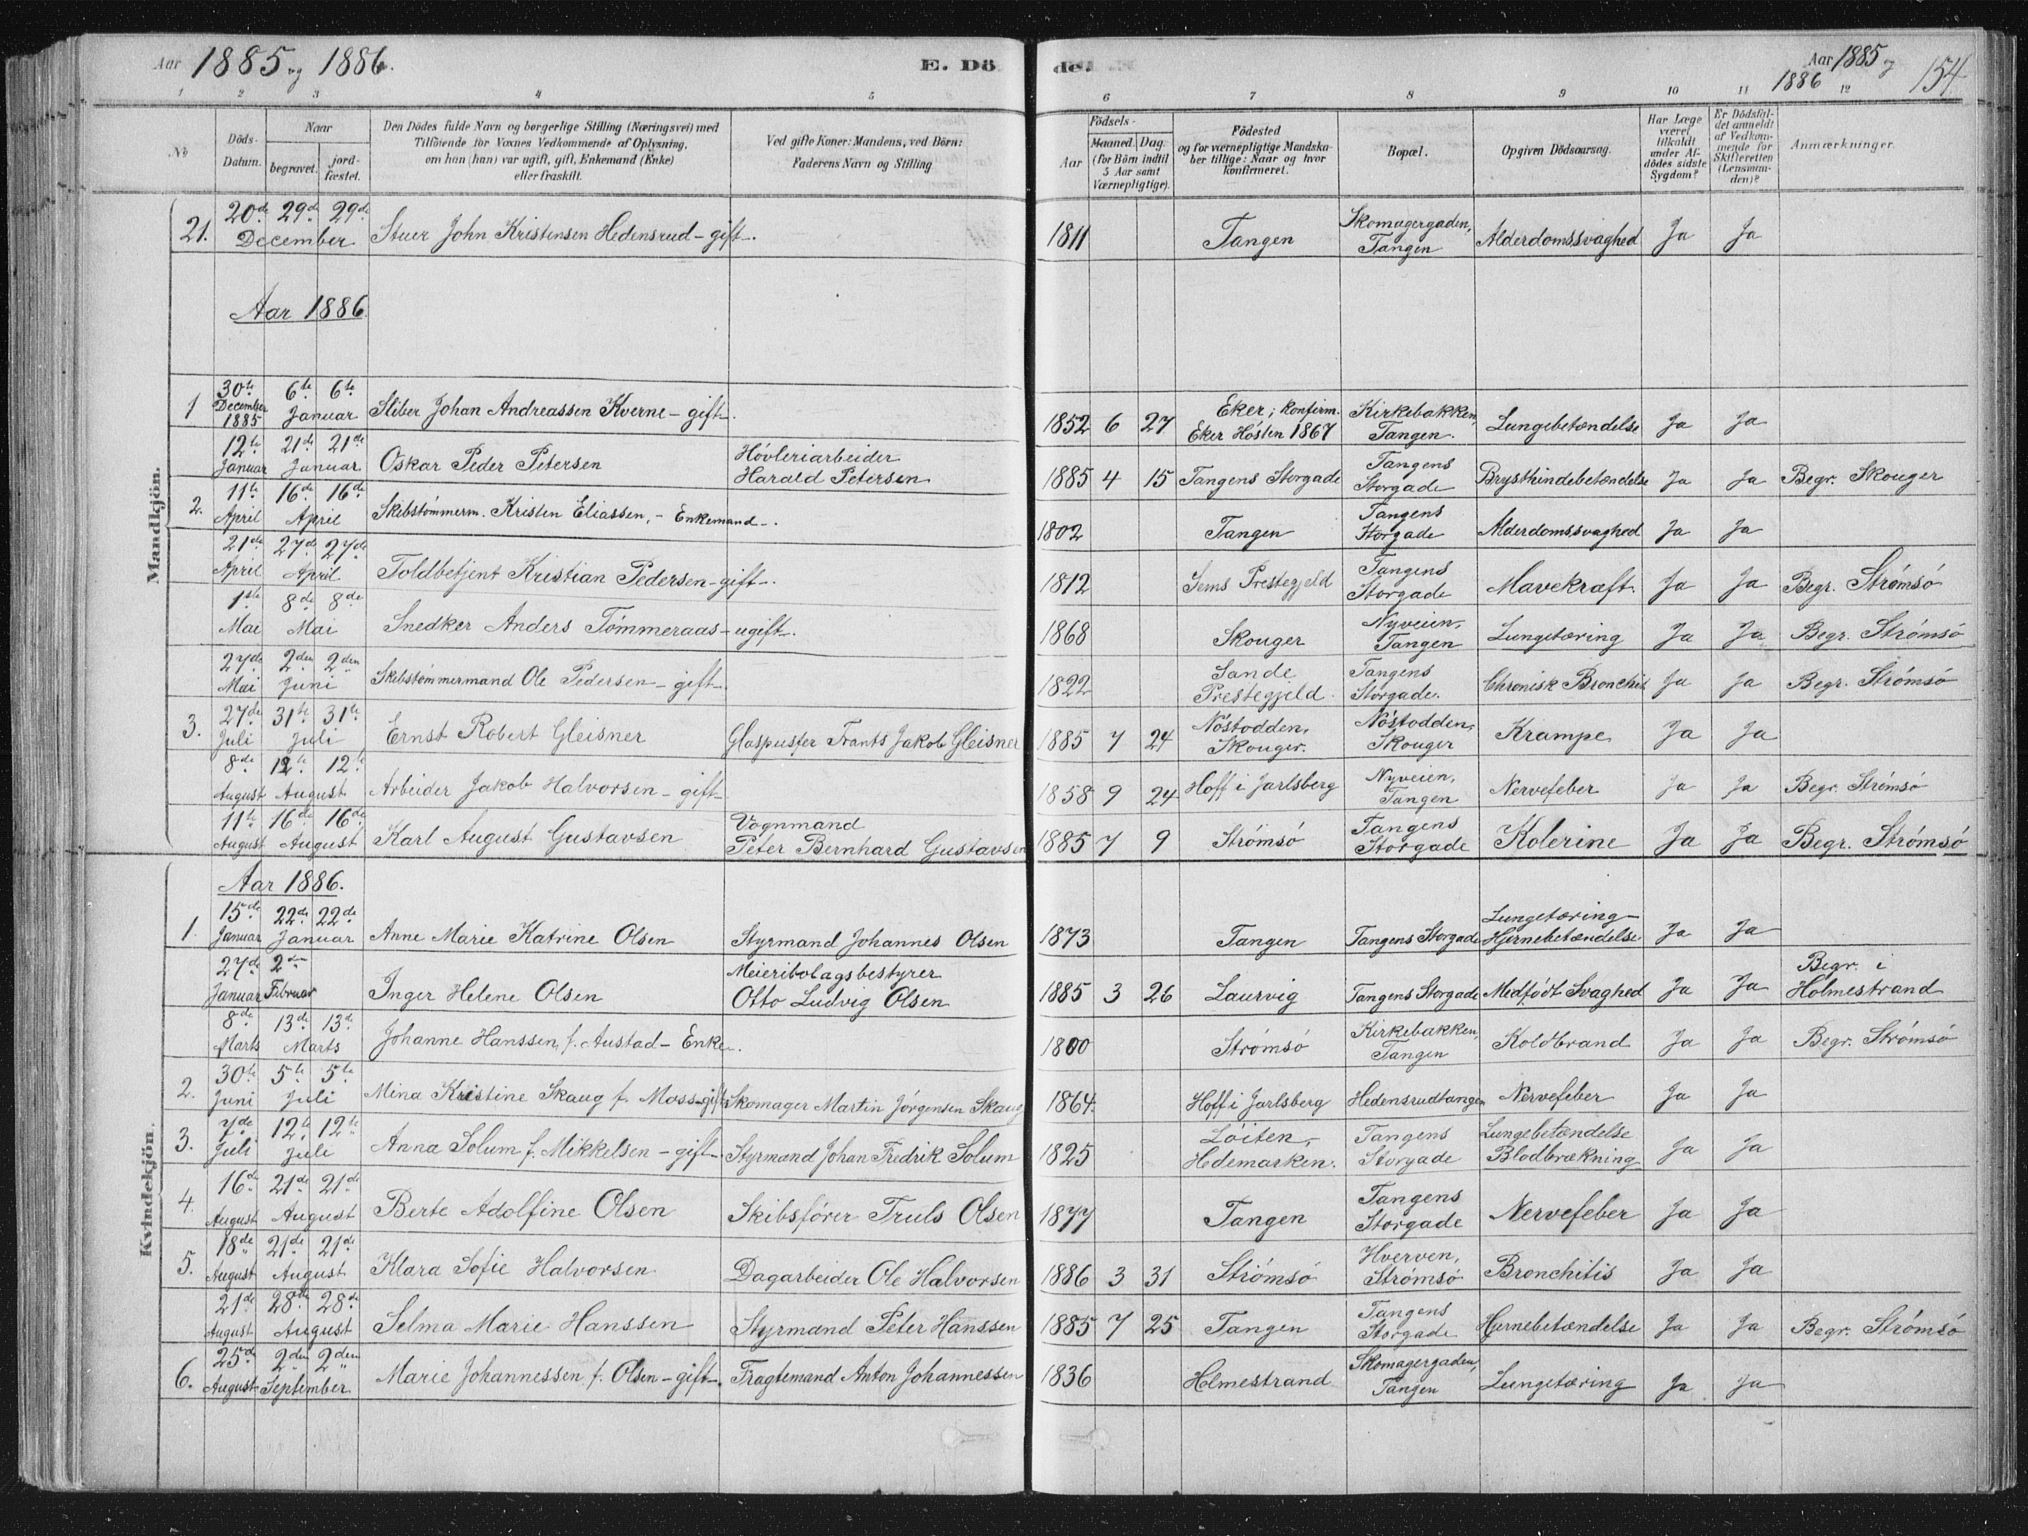 Aar 1885 og 1886. E. Dö de. Aar 1885 og 1886 154
1 2 3 4 5 6 7 8 9 10 11 12
No
Döds-Datum.
Naar
begravet.
jord-fæstet.
Den Dödes fulde Navn og borgerlige Stilling (Næringsvei) med
Tilföiende for Voxnes Vedkommende af Oplysning,
om hun (han) var ugift, gift, Enkemand (Enke)
eller fraskilt.
Ved gifte Koner: Mandens, ved Börn:
Faderens Navn og Stilling
Födsels-
Aar
Maaned. Dag.
(for Börn indtil
5 Aar samt
Værnepligtige).
Födested
og for værnepligtige Mandska-
ber tillige: Naar og hvor
konfirmeret.
Bopæl.
Opgiven Dödsaarsag.
Har Læge
været
tilkaldt
under Af-
dödes sidste
Sygdom?
Er Dödsfal-
det anmeldt
af Vedkom-
mende for
Skifteretten
(Lensman-
den)?
Anmærkninger.
Mandkjön.
21. 20de December 29de 29de Stuer John Kristensen Hedensrud - gift. 1811 Tangen Skomagergaden, Tangen Alderdomssvaghed Ja Ja
Aar 1886
1 30te December 1885 6te 6te Januar Stiber Johan Andreassen Kverne - gift. 1852 6 27 Eker; konfirm. Eker Høsten 1867 Kirkebakken, Tangen. Lungebetændelse Ja Ja
12te Januar 21de 21de Januar Oskar Peder Petersen Høvleriarbeider Harald Petersen 1885 4 15 Tangens Storgade Tangens Storgade Brysthindebetændelse Ja Ja Begr. Skouger
2. 11te April 16de 16de April Skibstømmerm. Kristen Eliassen, - Enkemand. 1802 Tangen Tangens Storgade Alderdomssvaghed Ja Ja
21de April 27de 27de April Toldbetjent Kristian Pedersen - gift. 1812 Sems Prestegjeld Tangens Storgade Mavekræft. Ja Ja Begr. Strømsø
1ste Mai 8de 8de Mai Snedker Anders Tømmeraas - ugift. 1868 Skouger Nyveien, Tangen Lungetæring Ja Ja Begr. Strømsø
27de Mai 2den 2den Juni Skibstømmermand Ole Pedersen - gift. 1822 Sande Prestegjeld. Tangens Storgade. Chronisk Bronchit Ja Ja Begr. Strømsø
3. 27de Juli 31te 31te Juli Ernst Robert Gleisner Glaspuster Frants Jakob Gleisner 1885 7 24 Nøstodden, Skouger. Nøstodden, Skouger Krampe Ja Ja
8de August 12te 12te August Arbeider Jakob Halvorsen - gift 1858 9 24 Hoff i Jarlsberg Nyveien, Tangen Nervefeber Ja Ja Begr. Strømsø
11te August 16de 16de August Karl August Gustavsen Vognmand Peter Bernhard Gustavsen 1885 7 9 Strømsø Tangens Storgade Kolerine Ja Ja Begr. Strømsø
Kvindekjön.
Aar 1886.
1. 15de Januar 22de 22de Januar Anne Marie Katrine Olsen Styrmand Johannes Olsen 1873 Tangen Tangens Storgade Lungetæring - Hjernebetændelse Ja Ja
27de Januar 2den Februar Inger Helene Olsen Meieribolagsbestyrer Otto Ludvig Olsen 1885 3 26 Laurvig Tangens Storgade Medfødt Svaghed Ja Ja Begr. i Holmestrand
8de Marts 13de 13de Marts Johanne Hanssen, f. Austad - Enke. 1800 Strømsø Kirkebakken, Tangen Koldbrand Ja Ja Begr. Strømsø
2. 30te Juni 5te 5te Juli Mina Kristine Skaug f. Moss - gift Skomager Martin Jørgensen Skaug 1864. Hoff i Jarlsberg Hedensrudtangen Nervefeber Ja Ja
3. 7de Juli 12te 12te Juli Anna Solum f. Mikkelsen - gift. Styrmand Johan Fredrik Solum 1825 Løiten, Hedemarken. Tangens Storgade Lungebetændelse Blodbrækning Ja Ja
4. 16de August 21de 21de August Berte Adolfine Olsen Skibsfører Truls Olsen 1877 Tangen Tangens Storgade Nervefeber Ja Ja
5. 18de August 21de 21de August Klara Sofie Halvorsen Dagarbeider Ole Halvorsen 1886 3 31 Strømsø Hverven, Strømsø Bronchitis Ja Ja
21de August 28de 28de August Selma Marie Hanssen Styrmand Peter Hanssen 1885 7 25 Tangen Tangens Storgade Hjernebetændelse Ja Ja Begr. Strømsø
6. 25de August 2den 2den September Marie Johannessen f. Olsen - gift. Fragtemand Anton Johannessen 1836 Holmestrand Skomagergaden, Tangen Lungetæring Ja Ja